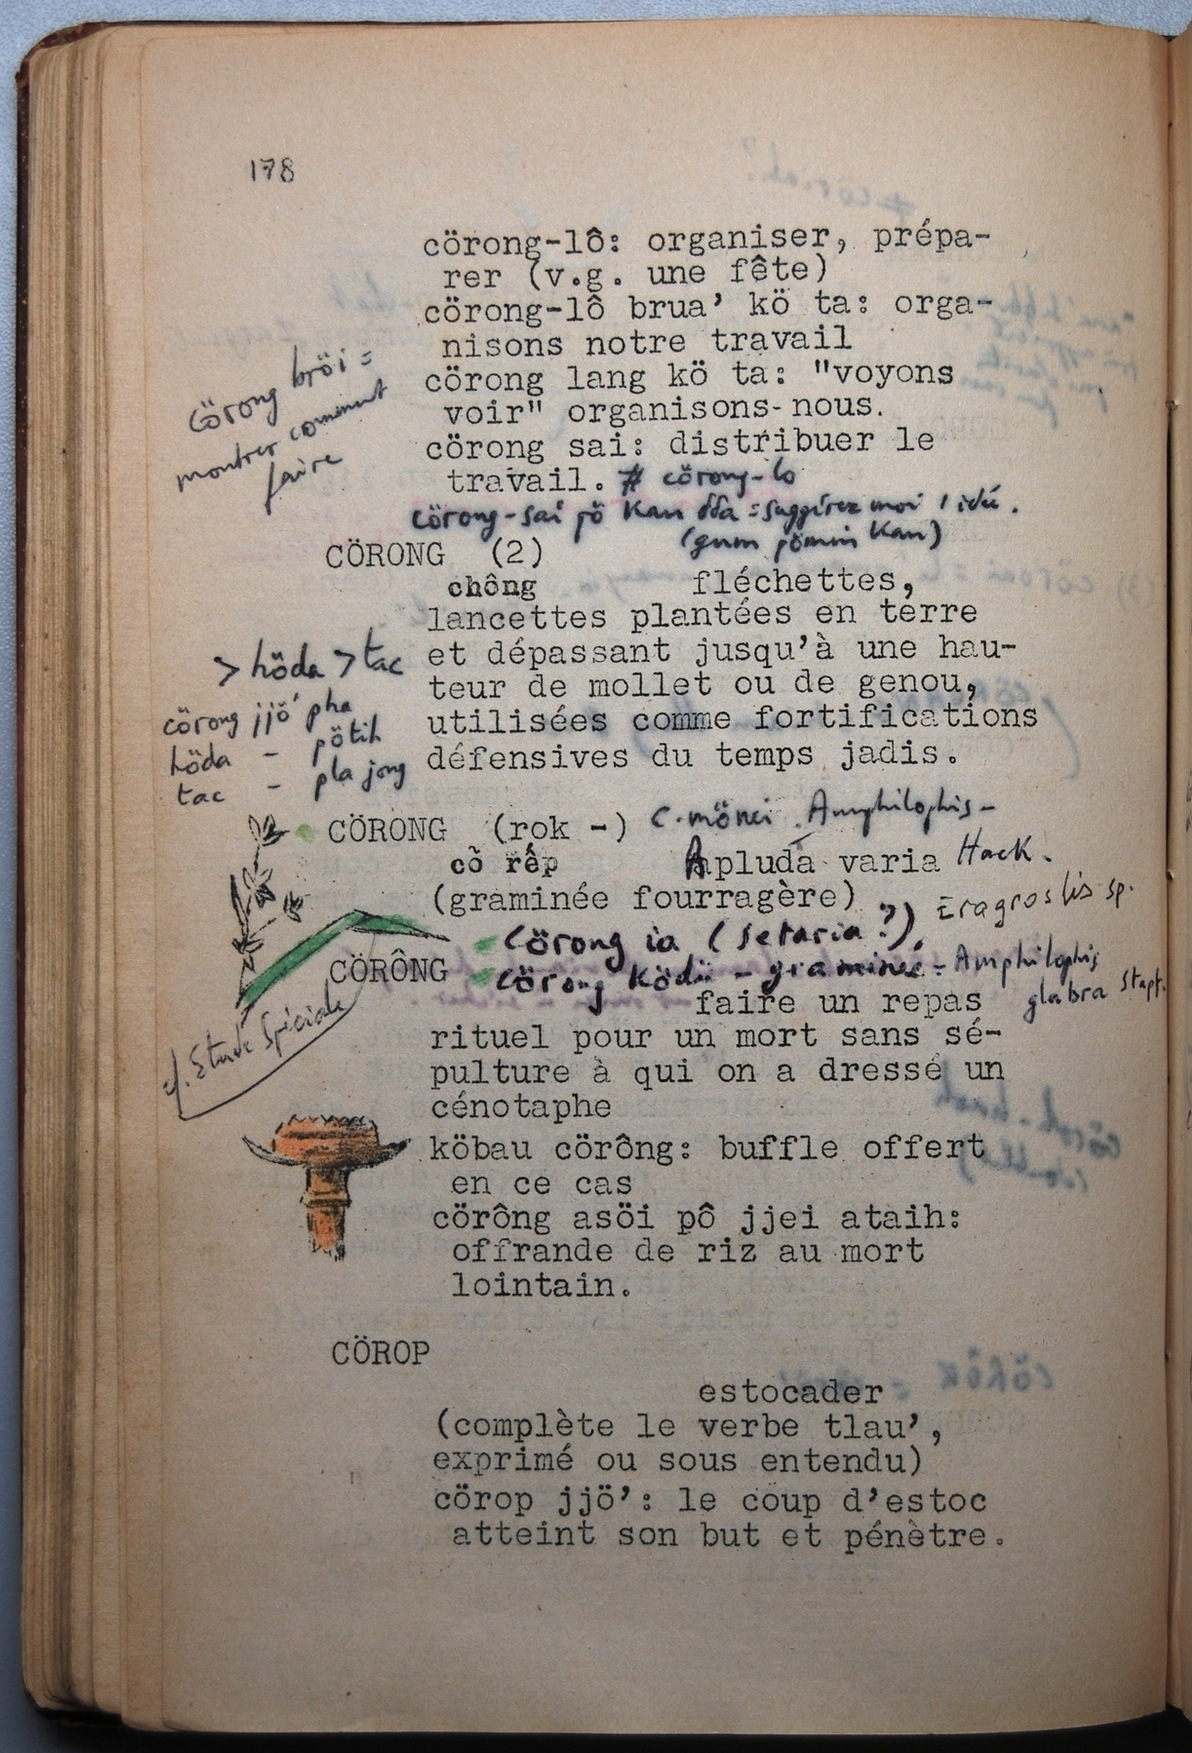 178
cörong-lô: organiser, prépa-
rer (v.g. une fête)
cörong-lô brua’ kö ta: orga-
nisons notre travail
cörong bröi =
montrer comment
faire
cörong lang kö ta: "voyons
voir" organisons-nous.
cörong sai: distribuer le
travail. # cörong-lo
cörong-sai pö kau dda = suggérez moi 1 idée.
(gum pömin kau)
CÖRONG (2)
chông fléchettes,
lancettes plantées en terre
> höda > tac
et dépassant jusqu’à une hau-
teur de mollet ou de genou,
cörong jjö’ pha
höda - pötih
tac - pla jong
utilisées comme fortifications
défensives du temps jadis.
CÖRONG (rok -) c. mönei Amphilophis-
cõ rếp Apluda varia Hack.
(graminée fourragère) Eragrostis sp.
- Cörong ia (Setaria ?),
CÖRÔNG - cörong ködii - graminée - Amphilophis
glabra Stapf.
faire un repas
cf. Etude Spéciale
rituel pour un mort sans sé-
pulture à qui on a dressé un
cénotaphe
köbau cörông: buffle offert
en ce cas
cörông asöi pô jjei ataih:
offrande de riz au mort
lointain.
CÖROP
estocader
(complète le verbe tlau’,
exprimé ou sous entendu)
cörop jjö’: le coup d’estoc
atteint son but et pénètre.